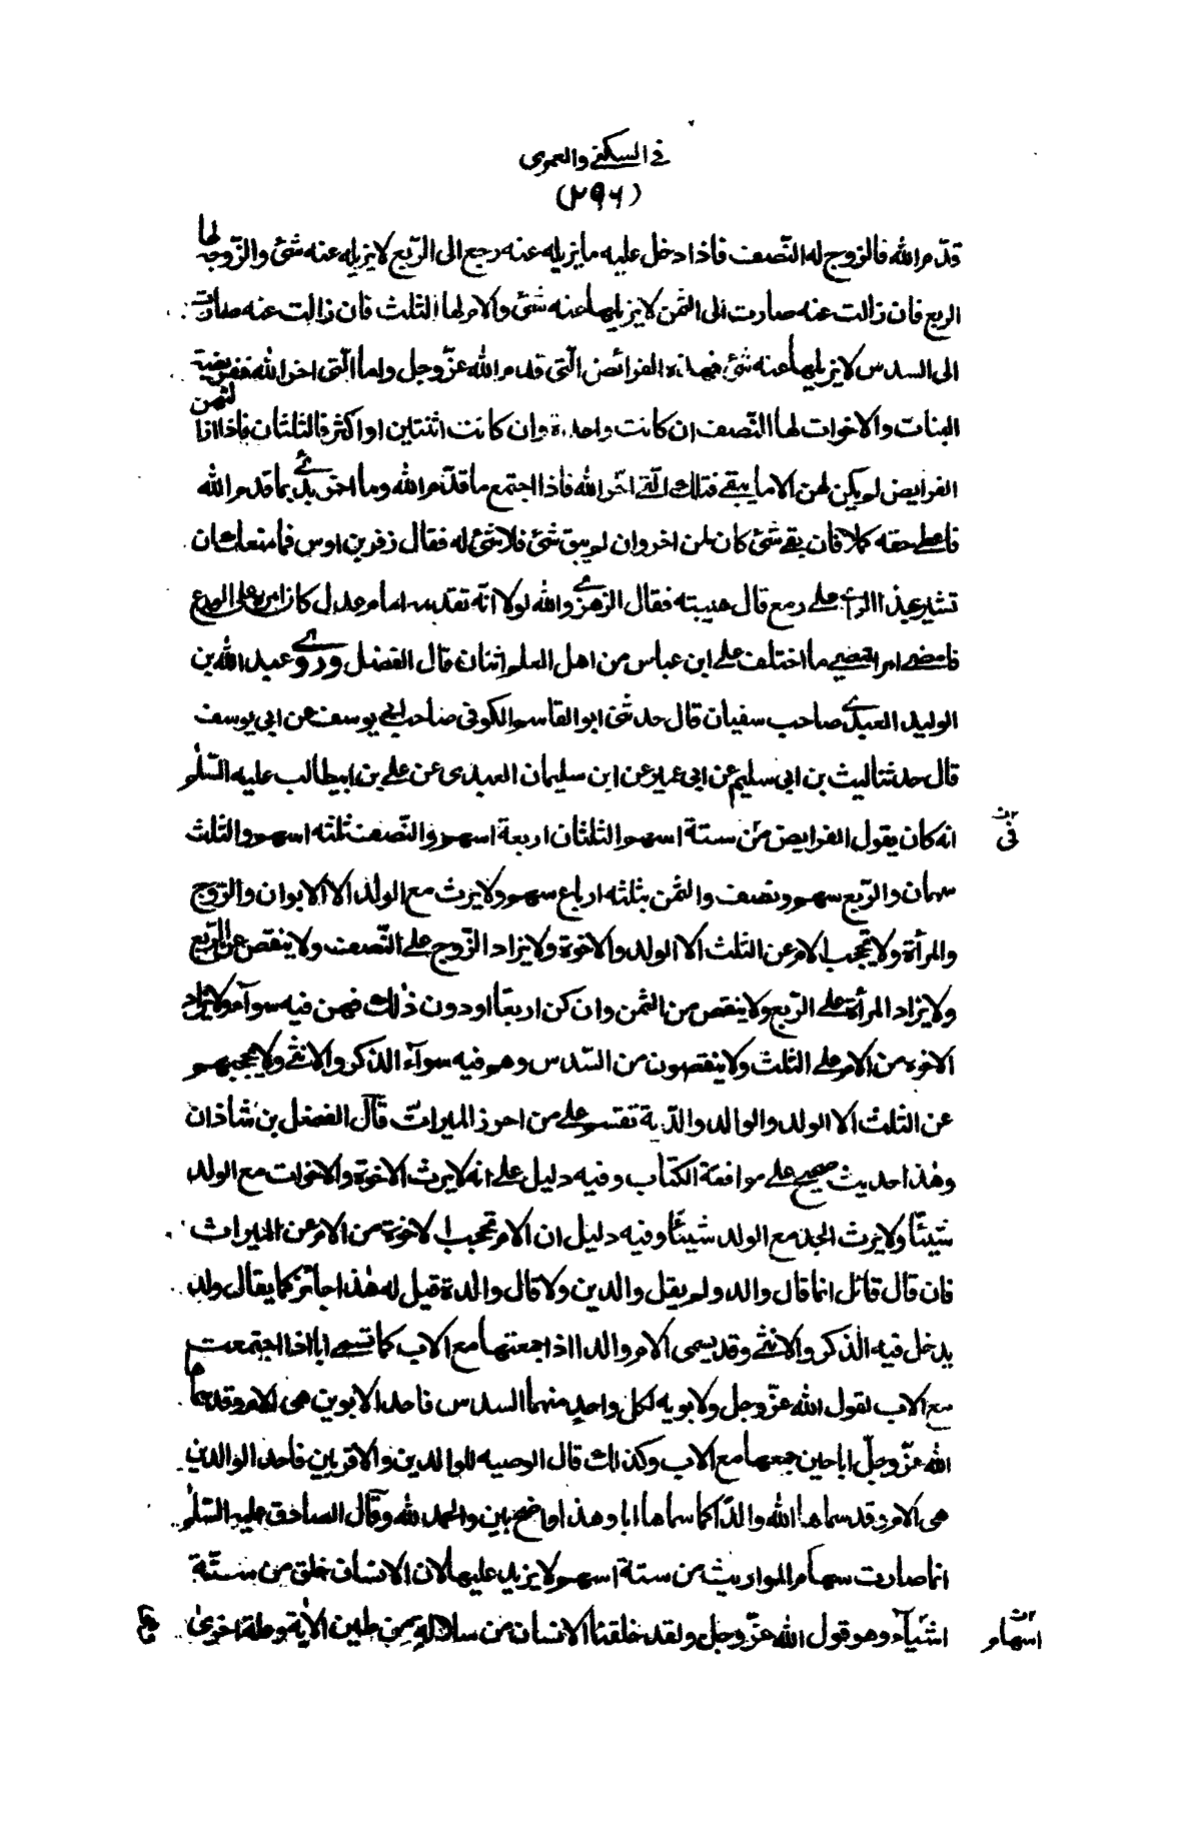 في السكنى والعمرى
(٢٩٦)
قدّم الله فالزوج له النّصف فاذا دخل عليه ما يزيله عنه رجع الى الرّبع لا يزيله عنه شئ والزّوجة لها
الربع فان زالت عنه صارت الى الثمن لا يزيلها عنه شئ والام لها الثلث فان زالت عنه صارت
الى السدس لا يزيلها عنه شئ فهذه الفرائض الّتى قدم الله عزّ وجل واما الّتى اخر الله ففريضة
البنات والاخوات لها النّصف ان كانت واحدة وان كانت اثنتين او اكثر فالثلثان فاذا ازالتهن
الفرايض لم يكن لهن الا ما يبقى فتلك الّتى اخّر الله فاذا اجتمع ما قدّم الله وما اخر بدئ بما قدم الله
فاعطى حقه كملا فان بقى شئ كان لمن اخر وان لم يبق شئ فلا شئ له فقال زفر بن اوس فما منعك ان
تشير بهذا الراى على عمر قال هيبته فقال الزهرى والله لولا انّه تقدمه امام عدل كان امره على الورع
فامضى امرا فمضى ما اختلف على ابن عباس من اهل العلم اثنان قال الفضل وروى عبد الله بن
الوليد العبدى صاحب سفيان قال حدثنى ابو القاسم الكوفى صاحب ابى يوسف عن ابى يوسف
قال حدثنا ليث بن ابى سليم عن ابى عمر عن ابن سليمان العبدى عن على بن ابيطالب عليه السّلم
انه كان يقول الفرايض من ستة اسهم الثلثان اربعة اسهم والنّصف ثلثه اسهم والثلث
فى
سهمان والرّبع سهم ونصف والثمن بثلثه ارباع سهم ولا يرث مع الولد الا الابوان والزّوج
والمرأة ولا يحجب الام عن الثلث الا الولد والاخوة ولا يزاد الزّوج على النّصف ولا ينقص من الرّبع
ولا يزاد المرأة على الرّبع ولا ينقص من الثمن وان كن اربعا او دون ذلك فهن فيه سوآء ولا يزاد
الاخوة من الام على الثلث ولا ينقصون من السّدس وهم فيه سوآء الذكر والانثى ولا يحجبهم
عن الثلث الا الولد والوالد والدّية تقسم على من احرز الميراث قال الفضل بن شاذان
وهذا حديث صحيح على موافقة الكتاب وفيه دليل على انه لا يرث الاخوة والاخوات مع الولد
شيئا ولا يرث الجد مع الولد شيئا وفيه دليل ان الام تحجب الاخوة من الام عن الميراث
فان قال قائل انما قال والد ولم يقل والدين ولا قال والدة قيل له هذا جائز كما يقال ولد
يدخل فيه الذكر والانثى وقد يسمى الام والدا اذا جمعتها مع الاب كما تسمى ابا اذا اجتمعت
مع الاب لقول الله عزّ وجل ولابويه لكل واحد منهما السدس فاحد الابوين هى الام وقد سماها
الله عزّ وجلّ ابا حين جمعها مع الاب وكذلك قال الوصيه للوالدين والاقربين فاحد الوالدين
هى الام وقد سماها الله والدًا كما سماها ابا وهذا واضح بين والحمد لله وقال الصادق عليه السّلم
انما صارت سهام المواريث من ستة اسهم لا يزيد عليها لان الانسان خلق من ستّة
اشيآء وهو قول الله عزّ وجل ولقد خلقنا الانسان من سلالة من طين الآية وعلة اخرى
اسهام